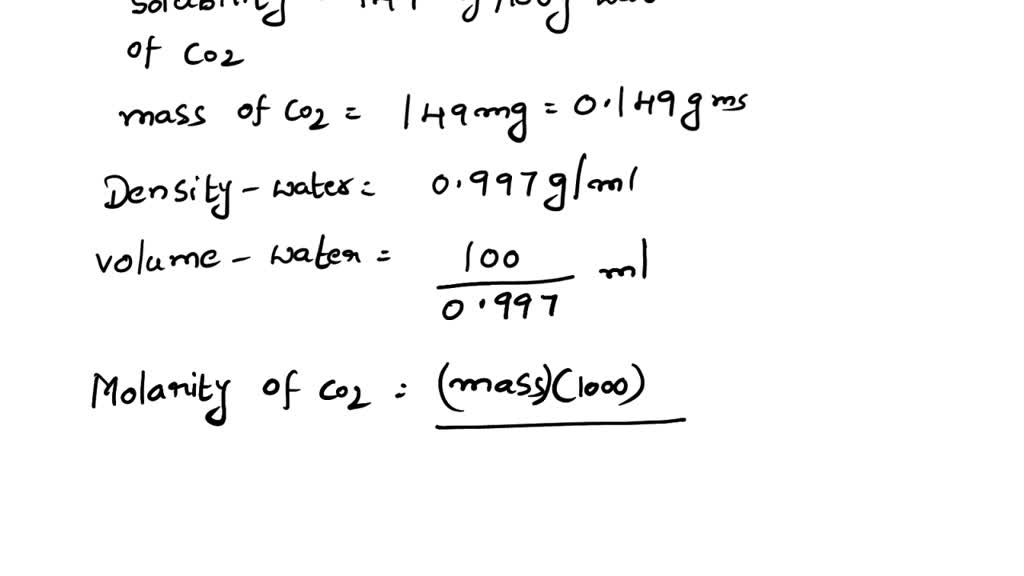 of Co2
mass of Co2 = 149mg = 0.149gms
Density-water = 0.997g/ml
volume - water = 100 / 0.997 ml
Molarity of Co2 = (mass)(1000)